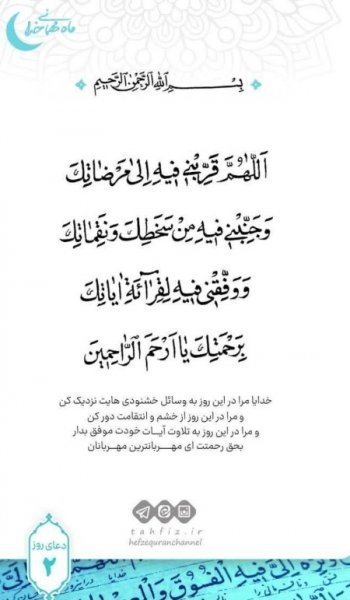 ماه مهمانی خدا
بِسْمِ اللهِ الرَّحْمٰنِ الرَّحِيمِ
اَللّٰهُمَّ قَرِّبْني فيهِ اِلىٰ مَرْضاتِكَ
وَجَنِّبْني فيهِ مِنْ سَخَطِكَ وَنَقِماتِكَ
وَوَفِّقْني فيهِ لِقِرآئَةِ اٰياتِكَ
بِرَحْمَتِكَ يا اَرْحَمَ الرّاحِمينَ
خدایا مرا در این روز به وسائل خشنودی هایت نزدیک کن
و مرا در این روز از خشم و انتقامت دور کن
و مرا در این روز به تلاوت آیــات خودت موفق بدار
بحق رحمتت ای مهــربانترین مهـربانان
tahfiz.ir
hefzequranchannel
دعای روز
۲